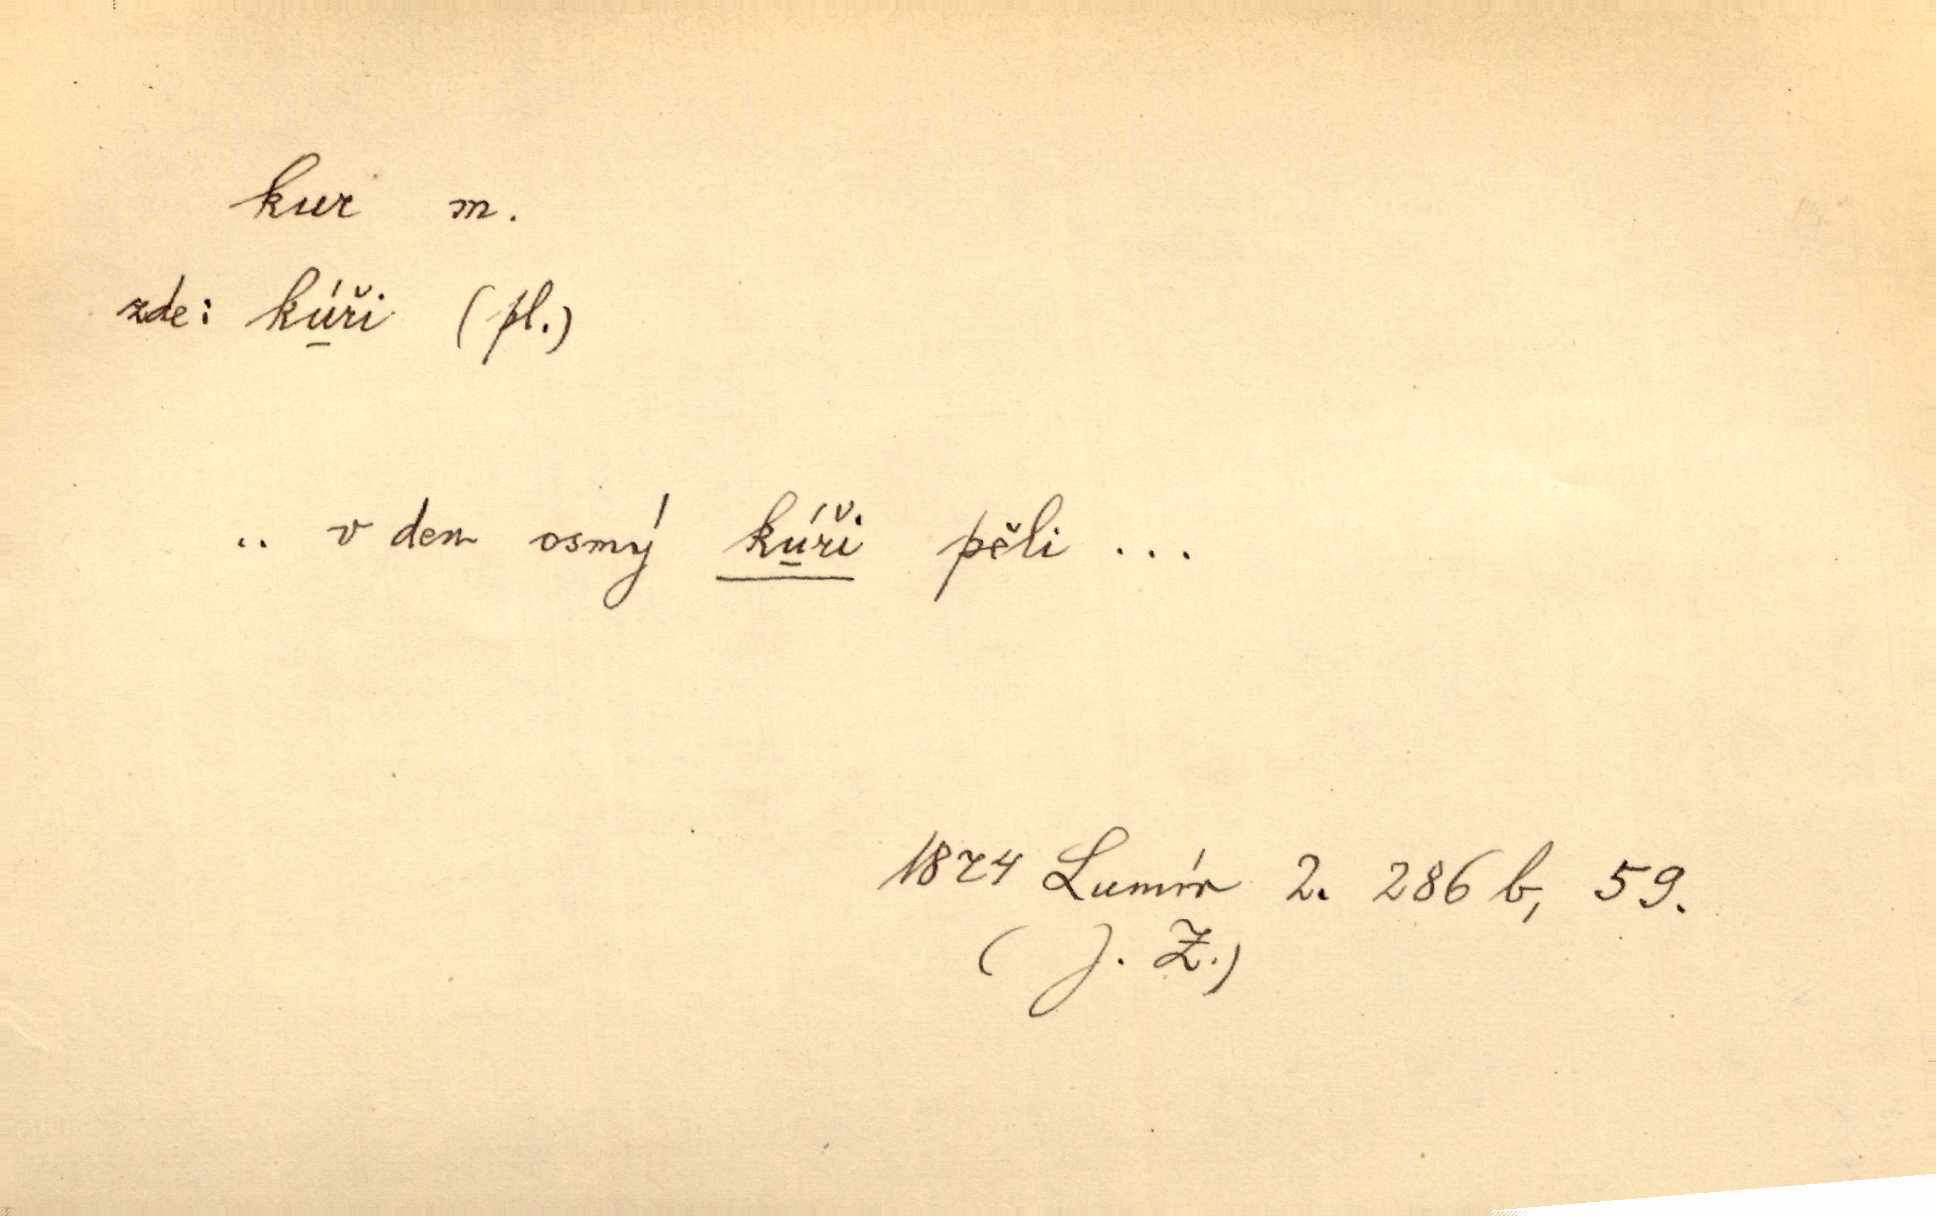 kur m.
zde: kúři (pl.)
.. v den osmý kúři pěli ...
1874 Lumír 2. 286 b, 59.
(J. Z.)